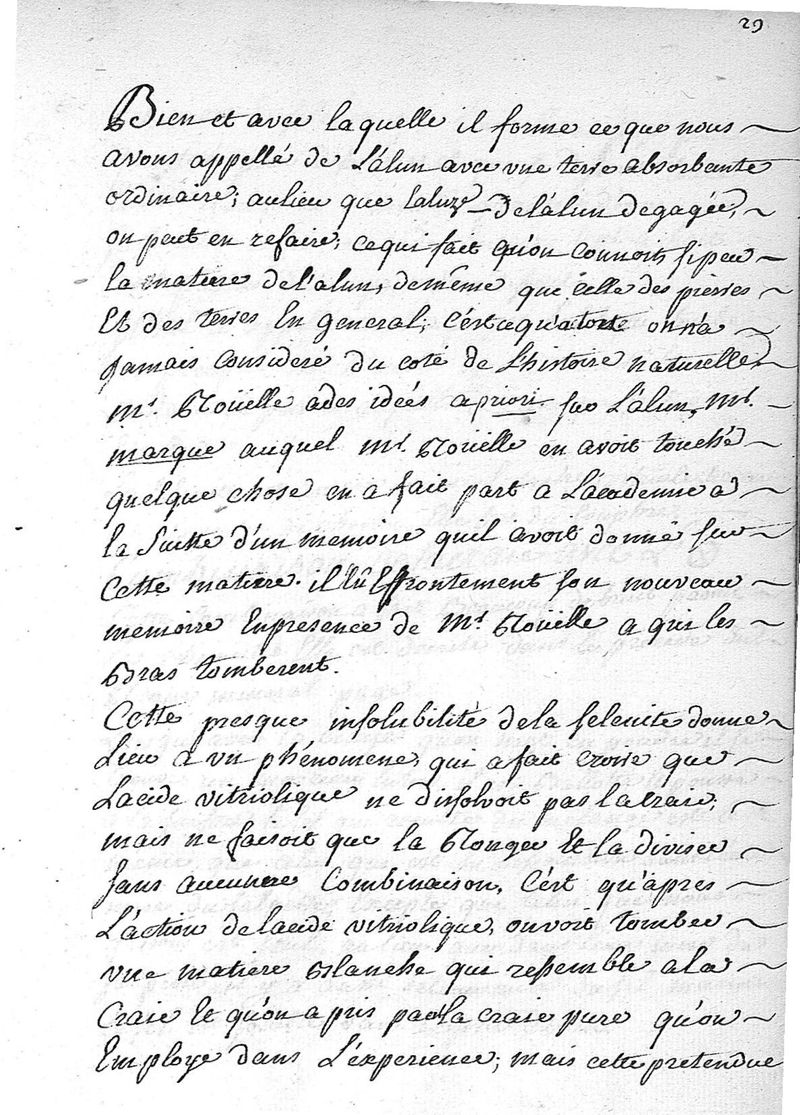 29
Bien et avec laquelle il forme ce que nous
avons appellé de L'alun avec vne terre absorbante
ordinaire; aulieu que de l'alun degagée,
on peut en refaire; ce qui fait qu'on connoit si peu
la matiere de l'alun, demême que celle des pierres
Et des terres En general; c'est qu'a tort on n'a
Jamais consideré du coté de L'histoire naturelle
Mr. Roüelle a des ideés a priori sur L'alun, Mr.
marque auquel Mr. Roüelle en avoit touché
quelque chose en a fait part a L'academie a
la Suitte d'un memoire quil avoit donné sur
Cette matiere. il lû Effrontement son nouveau
memoire En presence de Mr. Roüelle a qui les
Bras tomberent.
Cette presque insolubilité de la selenite donne
Lieu a vn phénomene, qui a fait croire que
Lacide vitriolique ne dissolvoit pas la craie,
mais ne faisoit que la Ronger Et la diviser
sans aucune Combinaison. C'est qu'apres
L'action de lacide vitriolique, on voit tomber
vne matiere Blanche qui ressemble a la
Craie Et qu'on a pris par la craie pure qu'on
Employe dans L'experience; mais cette pretendue